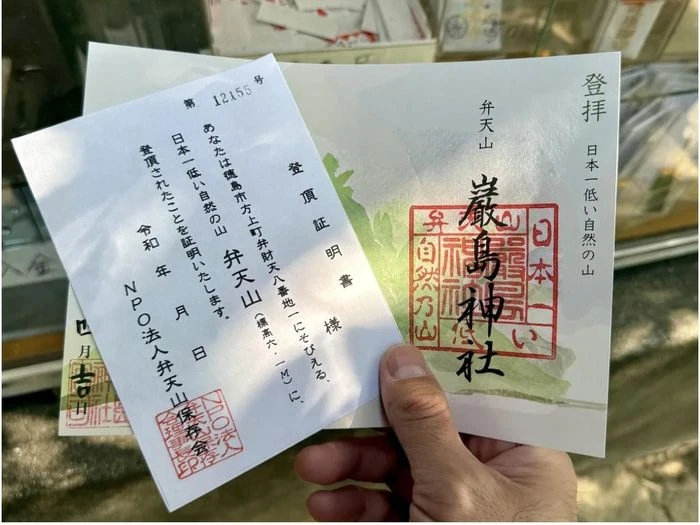 第 12155 号
登頂証明書
様
あなたは徳島市方上町弁財天八番地一にそびえる、
日本一低い自然の山 弁天山（標高六．一M）に、
登頂されたことを証明いたします。
令和 年 月 日
NPO法人弁天山保存会
登拝
日本一低い自然の山
弁天山
巖島神社
日本一
い
山
弁
自然乃山
月吉日